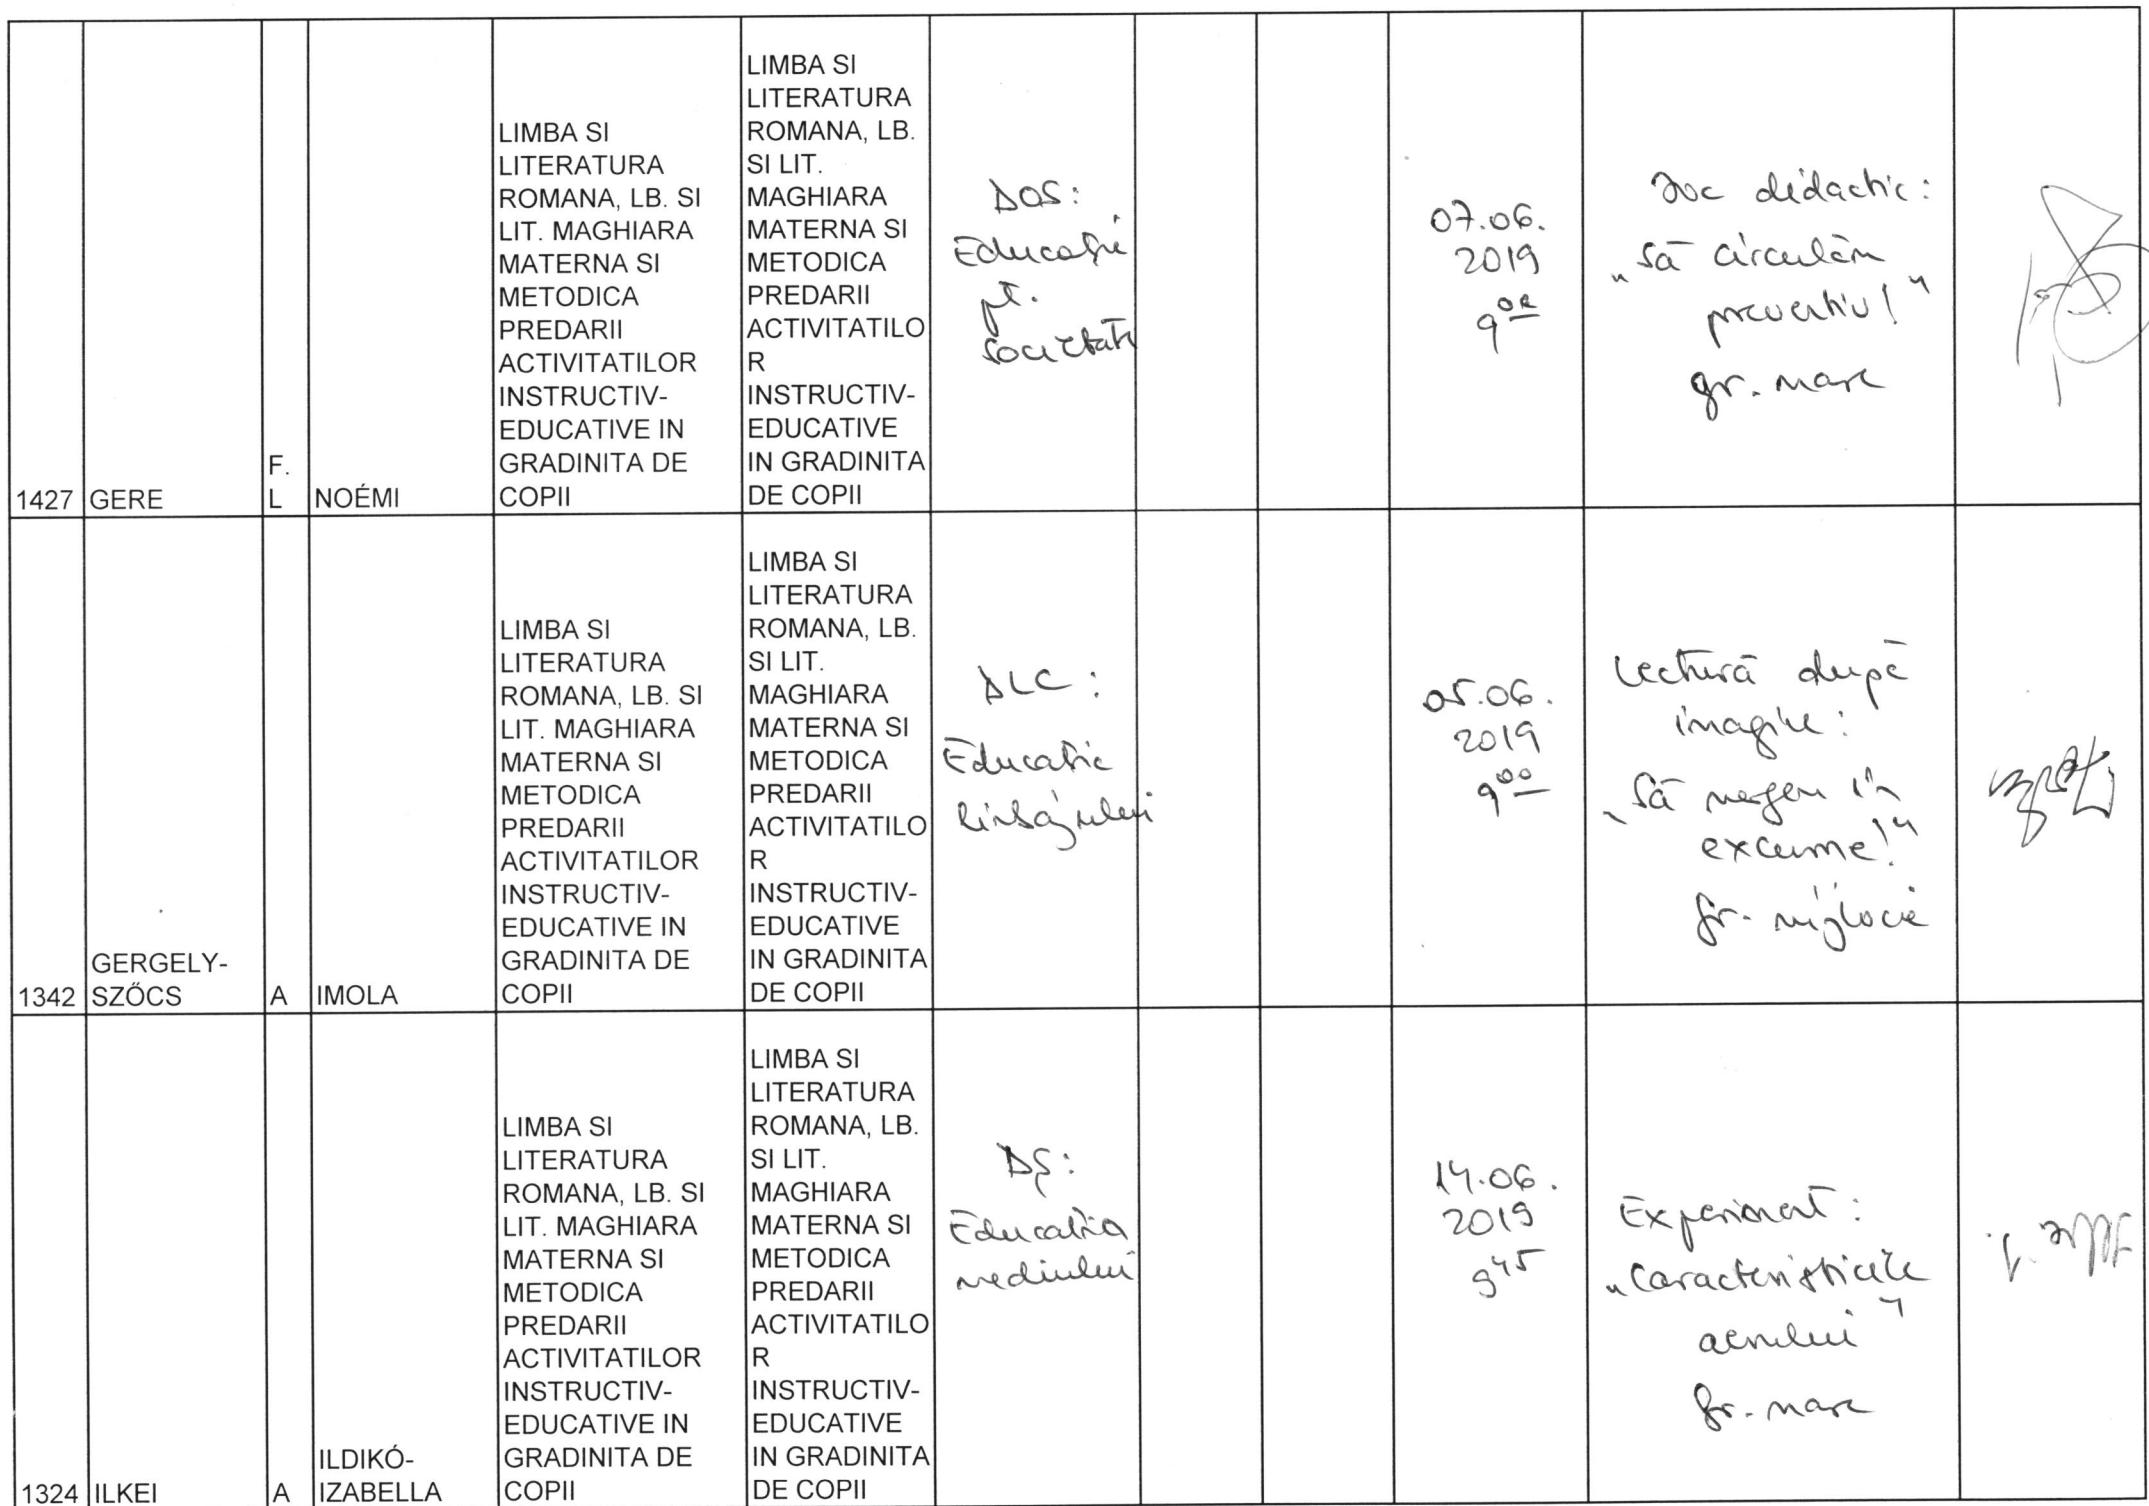 LIMBA SI
LITERATURA
ROMANA, LB. SI
LIT. MAGHIARA
MATERNA SI
METODICA
PREDARII
ACTIVITATILOR
INSTRUCTIV-
EDUCATIVE IN
GRADINITA DE
COPII
LIMBA SI
LITERATURA
ROMANA, LB.
SI LIT.
MAGHIARA
MATERNA SI
METODICA
PREDARII
ACTIVITATILO
R
INSTRUCTIV-
EDUCATIVE
IN GRADINITA
DE COPII
DOS:
Educație
pt.
societate
07.06.
2019
9 00
Joc didactic:
„Să circulăm
preventiv!"
gr. mare
1427 GERE F. L NOÉMI
LIMBA SI
LITERATURA
ROMANA, LB. SI
LIT. MAGHIARA
MATERNA SI
METODICA
PREDARII
ACTIVITATILOR
INSTRUCTIV-
EDUCATIVE IN
GRADINITA DE
COPII
LIMBA SI
LITERATURA
ROMANA, LB.
SI LIT.
MAGHIARA
MATERNA SI
METODICA
PREDARII
ACTIVITATILO
R
INSTRUCTIV-
EDUCATIVE
IN GRADINITA
DE COPII
DLC:
Educație
limbajului
05.06.
2019
9 00
Lectură după
imagine:
„Să mergem în
excursie!"
gr. mijlocie
1342 GERGELY-
SZŐCS A IMOLA
LIMBA SI
LITERATURA
ROMANA, LB. SI
LIT. MAGHIARA
MATERNA SI
METODICA
PREDARII
ACTIVITATILOR
INSTRUCTIV-
EDUCATIVE IN
GRADINITA DE
COPII
LIMBA SI
LITERATURA
ROMANA, LB.
SI LIT.
MAGHIARA
MATERNA SI
METODICA
PREDARII
ACTIVITATILO
R
INSTRUCTIV-
EDUCATIVE
IN GRADINITA
DE COPII
DȘ:
Educația
mediului
14.06.
2019
9 45
Experiment:
„Caracteristicile
aerului"
gr. mare
1324 ILKEI A ILDIKÓ-
IZABELLA